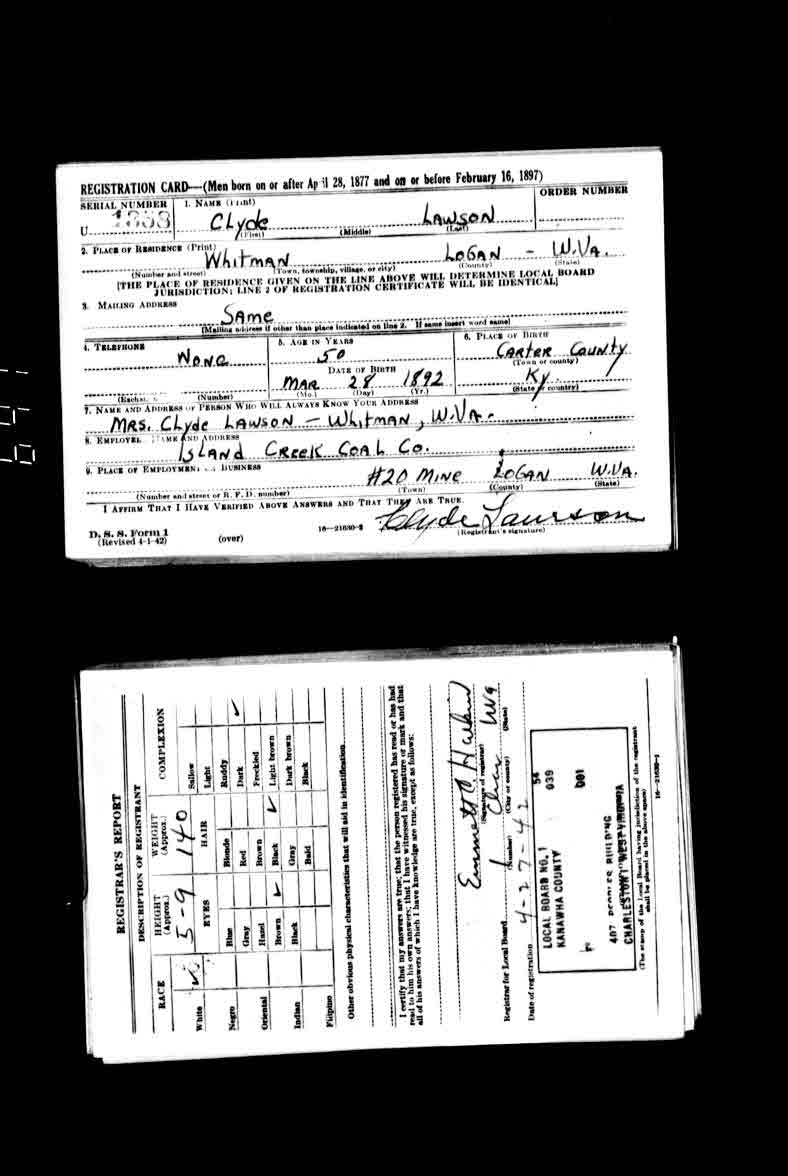 REGISTRATION CARD—(Men born on or after April 28, 1877 and on or before February 16, 1897)
SERIAL NUMBER 1. NAME (Print) ORDER NUMBER
U Clyde LAWSON
(First) (Middle) (Last)
2. PLACE OF RESIDENCE (Print)
Whitman LOGAN - W.VA.
(Number and street) (Town, township, village, or city) (County) (State)
[THE PLACE OF RESIDENCE GIVEN ON THE LINE ABOVE WILL DETERMINE LOCAL BOARD
JURISDICTION; LINE 2 OF REGISTRATION CERTIFICATE WILL BE IDENTICAL]
3. MAILING ADDRESS
SAme
[Mailing address if other than place indicated on line 2. If same insert word same]
4. TELEPHONE 5. AGE IN YEARS 6. PLACE OF BIRTH
None 50 CArter County
(Town or county)
DATE OF BIRTH
MAR 28 1892 Ky.
(Exchange) (Number) (Mo.) (Day) (Yr.) (State or country)
7. NAME AND ADDRESS OF PERSON WHO WILL ALWAYS KNOW YOUR ADDRESS
MRS. Clyde LAWSON - Whitman, W.VA.
8. EMPLOYER'S NAME AND ADDRESS
ISLAND CReeK COAL Co.
9. PLACE OF EMPLOYMENT OR BUSINESS
#20 MINe LOGAN W.VA.
(Number and street or R. F. D. number) (Town) (County) (State)
I AFFIRM THAT I HAVE VERIFIED ABOVE ANSWERS AND THAT THEY ARE TRUE.
Clyde Lawson
D. S. S. Form 1 16—21630-2 (Registrant's signature)
(Revised 4-1-42) (over)
REGISTRAR'S REPORT
DESCRIPTION OF REGISTRANT
RACE HEIGHT (Approx.) WEIGHT (Approx.) COMPLEXION
5-9 140
White EYES HAIR Sallow
Light
Negro Blue Blonde Ruddy
Gray Red Dark ✓
Oriental Hazel Brown Freckled
Brown ✓ Black ✓ Light brown
Indian Black Gray Dark brown
Bald Black
Filipino
Other obvious physical characteristics that will aid in identification
I certify that my answers are true; that the person registered has read or has had
read to him his own answers; that I have witnessed his signature or mark and that
all of his answers of which I have knowledge are true, except as follows:
Emmett
(Signature of registrar)
Registrar for Local Board 1 Char WVa
(Number) (City or county) (State)
Date of registration 4-27-42
LOCAL BOARD NO. 1 54
KANAWHA COUNTY 039
001
407 PEOPLES BUILDING
CHARLESTON, WEST VIRGINIA
(The stamp of the Local Board having jurisdiction of the registrant
shall be placed in the above space)
16—21630-1